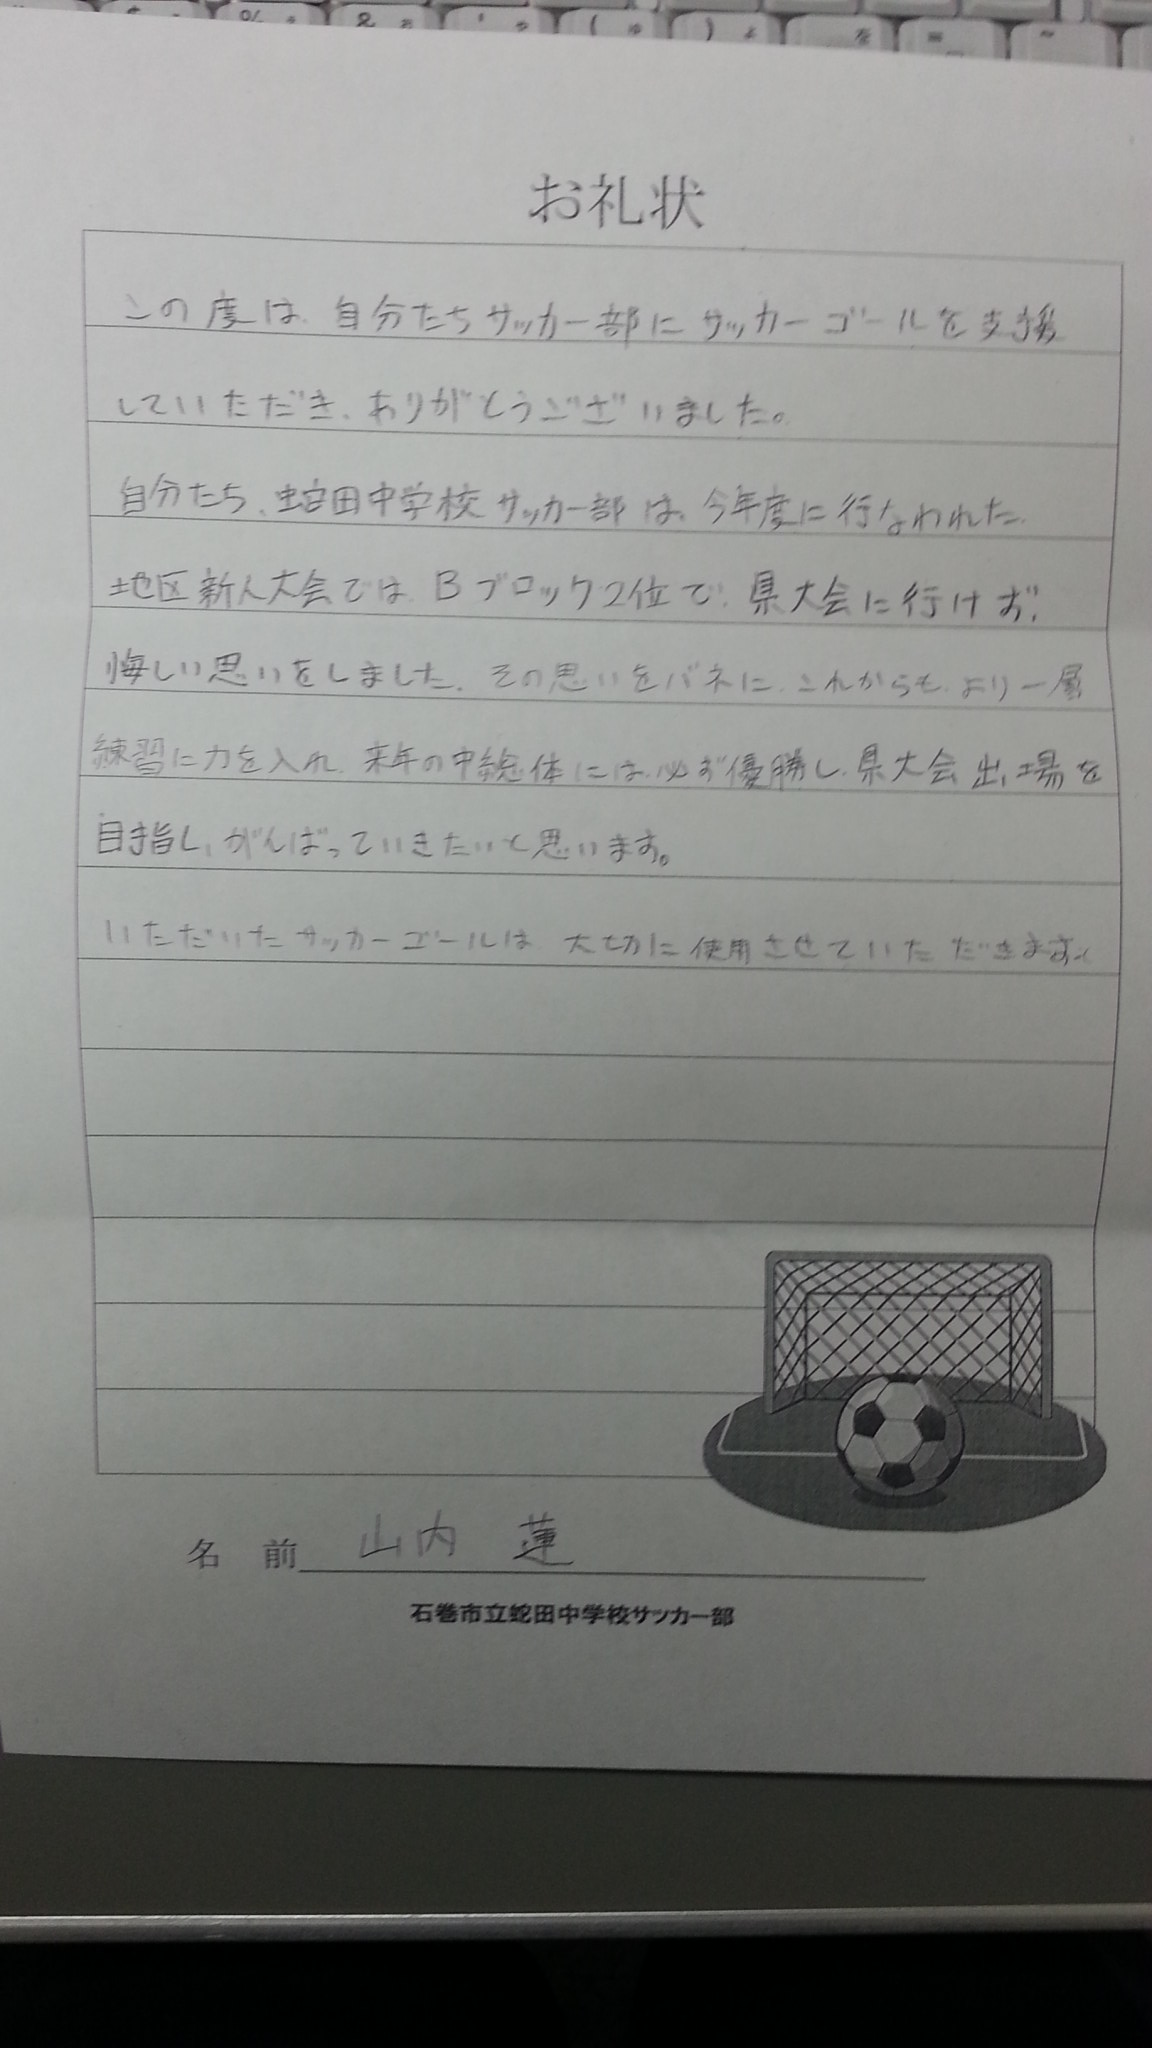 お礼状
この度は、自分たちサッカー部にサッカーゴールを支援
していただき、ありがとうございました。
自分たち、蛇田中学校サッカー部は、今年度に行なわれた
地区新人大会では、Bブロック2位で、県大会に行けず、
悔しい思いをしました。その思いをバネに、これからも、より一層
練習に力を入れ、来年の中総体には、必ず優勝し、県大会出場を
目指し、がんばっていきたいと思います。
いただいたサッカーゴールは、大切に使用させていただきます。
名前 山内 蓮
石巻市立蛇田中学校サッカー部